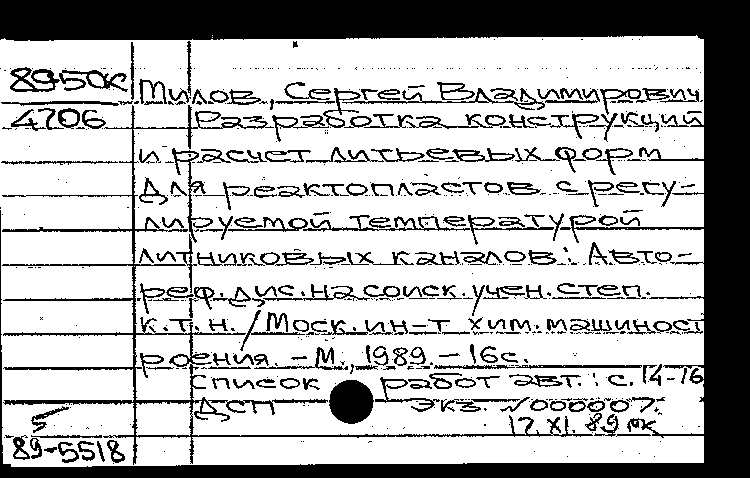 8950к Милов, Сергей Владимирович
4706 Разработка конструкций
и расчет литьевых форм
для реактопластов с регу-
лируемой температурой
литниковых каналов: Авто-
реф. дис. на соиск. учен. степ.
к.т.н. / Моск. ин-т хим. машиност
роения. - М., 1989. - 16с.
Список работ авт.: с. 14-16
ДСП Экз. №000007.
5 17. XI. 89
89-5518